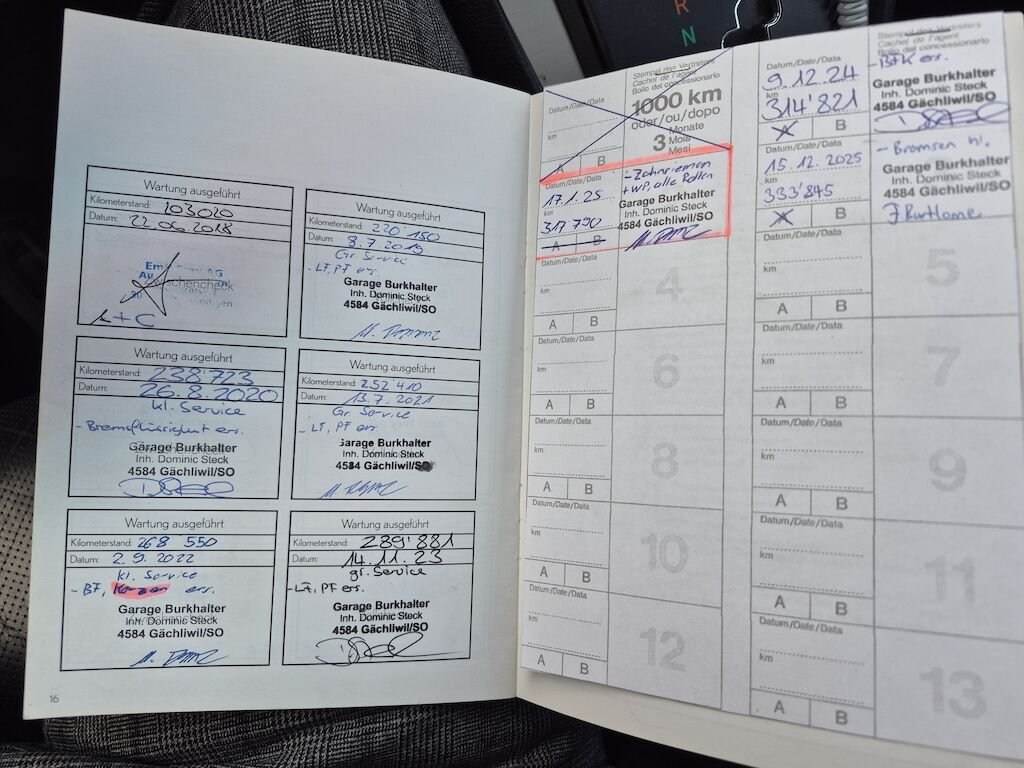 R
N
Wartung ausgeführt
Kilometerstand: 103020
Datum: 22.06.2018
A + C
Wartung ausgeführt
Kilometerstand: 220 150
Datum: 8.7.2019
Gr. Service
- LF, PF ers.
Garage Burkhalter
Inh. Dominic Steck
4584 Gächliwil/SO
Wartung ausgeführt
Kilometerstand: 238'723
Datum: 26.8.2020
kl. Service
- Bremsflüssigkeit ers.
Garage Burkhalter
Inh. Dominic Steck
4584 Gächliwil/SO
Wartung ausgeführt
Kilometerstand: 252'410
Datum: 13.7.2021
Gr. Service
- LF, PF ers.
Garage Burkhalter
Inh. Dominic Steck
4584 Gächliwil/SO
Wartung ausgeführt
Kilometerstand: 268 550
Datum: 2.9.2022
kl. Service
- BF, Kerzen ers.
Garage Burkhalter
Inh. Dominic Steck
4584 Gächliwil/SO
Wartung ausgeführt
Kilometerstand: 289'881
Datum: 14.11.23
gr. Service
- LF, PF ers.
Garage Burkhalter
Inh. Dominic Steck
4584 Gächliwil/SO
16
Datum/Date/Data
km
A B
Stempel des Vertreters
Cachet de l'agent
Bollo del concessionario
1000 km
oder/ou/dopo
3 Monate
Mois
Mesi
Datum/Date/Data
17.1.25
km
317'790
A B
- Zahnriemen
+ WP, alle Rollen
Garage Burkhalter
Inh. Dominic Steck
4584 Gächliwil/SO
Datum/Date/Data
km
A B
4
Datum/Date/Data
km
A B
6
Datum/Date/Data
km
A B
8
Datum/Date/Data
km
A B
10
Datum/Date/Data
km
A B
12
Datum/Date/Data
9.12.24
km
314'821
A B
Stempel des Vertreters
Cachet de l'agent
Bollo del concessionario
- BFK ers.
Garage Burkhalter
Inh. Dominic Steck
4584 Gächliwil/SO
Datum/Date/Data
15.12.2025
km
333'845
A B
- Bremsen hi.
Garage Burkhalter
Inh. Dominic Steck
4584 Gächliwil/SO
Datum/Date/Data
km
A B
5
Datum/Date/Data
km
A B
7
Datum/Date/Data
km
A B
9
Datum/Date/Data
km
A B
11
Datum/Date/Data
km
A B
13